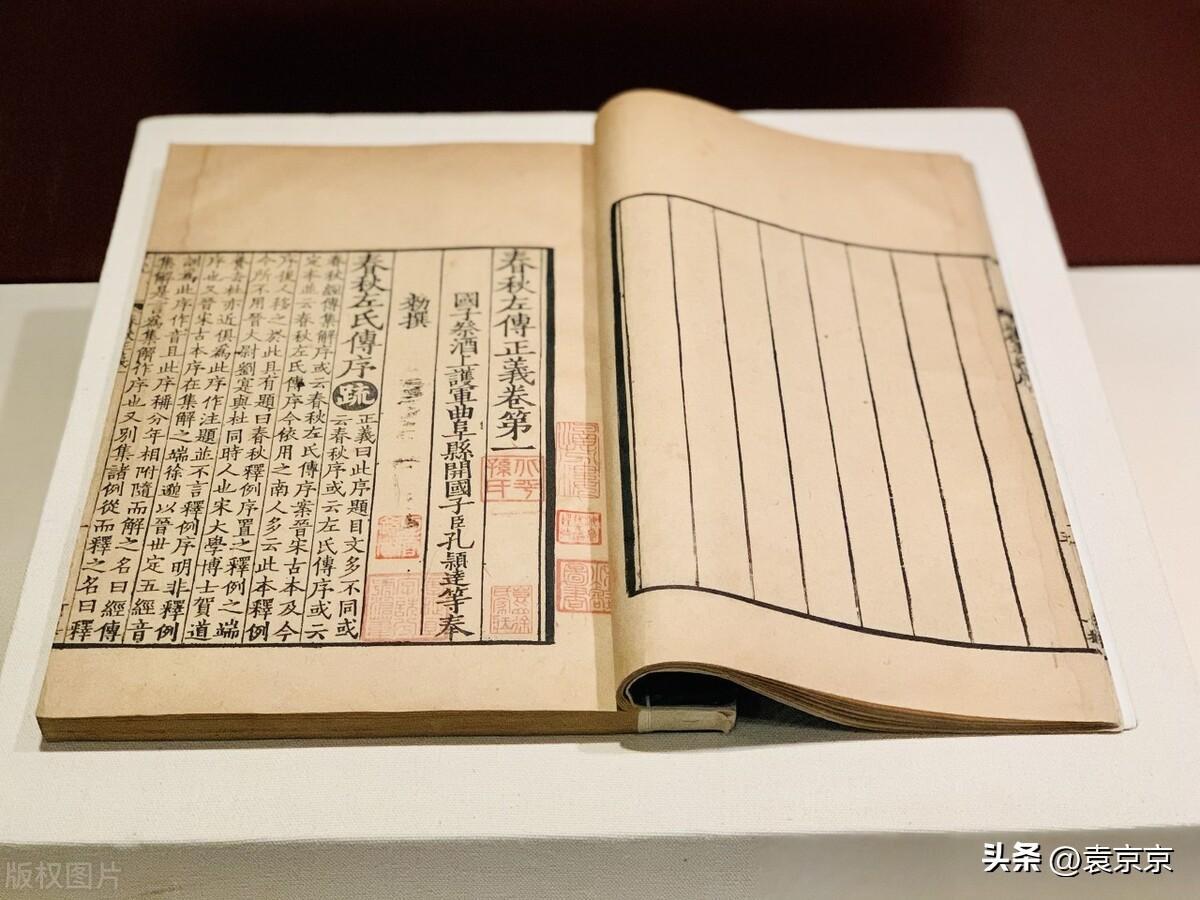 春秋左傳正義卷第一
國子祭酒上護軍曲阜縣開國子臣孔穎達等奉
勑撰
春秋左氏傳序 疏 正義曰此序題目文多不同或
云春秋序或云左氏傳序或云
春秋經傳集解序或云春秋左氏傳序案晉宋古本及今
定本並云春秋左氏傳序今依用之南人多云此本釋例
序後人移之於此且有題曰春秋釋例序置之釋例之端
今所不用晉大尉劉寔與杜同時人也宋大學博士賀道
養去杜亦近俱爲此序作注題並不言釋例序明非釋例
序也又晉宋古本序在集解之端徐邈以晉世定五經音
訓爲此序作音且此序稱分年相附隨而解之名曰經傳
集解是言爲集解作序也又別集諸例從而釋之名曰釋
版权图片
头条 @袁京京